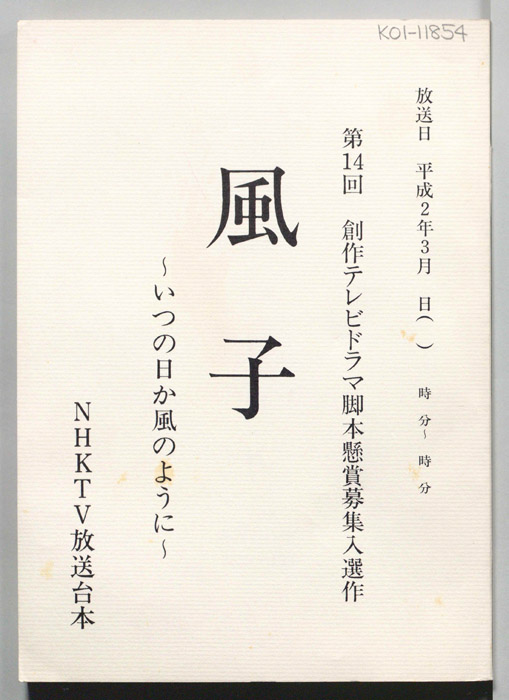 K01-11854
放送日 平成2年3月 日( ) 時 分~ 時 分
第14回 創作テレビドラマ脚本懸賞募集入選作
風子
~いつの日か風のように~
NHKTV放送台本